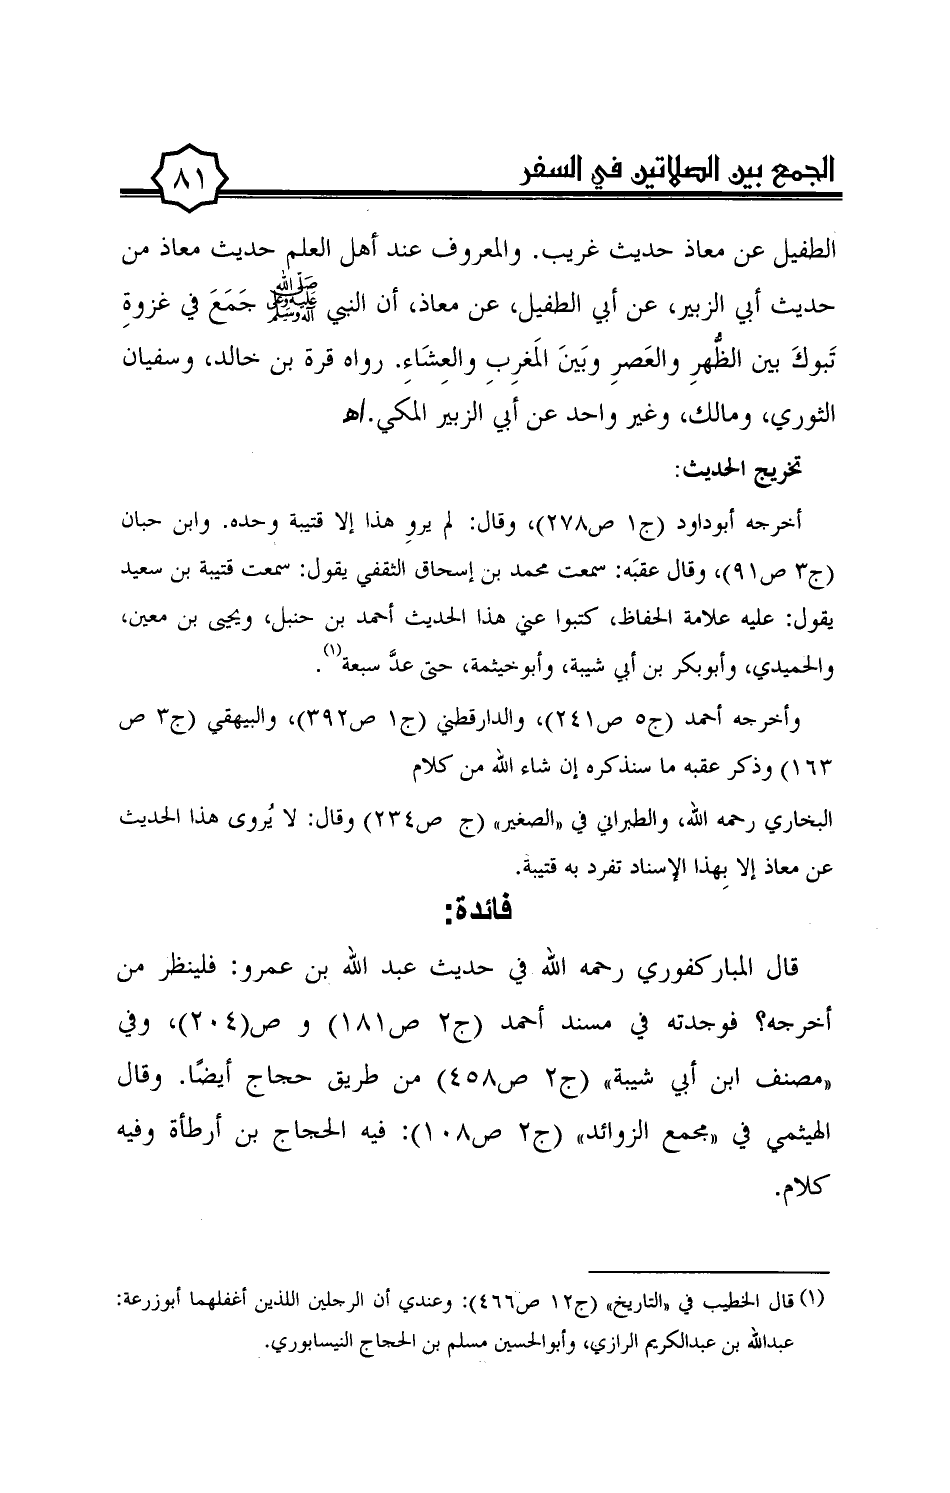 الجمع بين الصلاتين في السفر
٨١
الطفيل عن معاذ حديث غريب. والمعروف عند أهل العلم حديث معاذ من
حديث أبي الزبير، عن أبي الطفيل، عن معاذ، أن النبي ﷺ جَمَعَ في غزوةِ
تَبوكَ بين الظُّهرِ والعَصرِ وبَينَ المَغربِ والعِشَاءِ. رواه قرة بن خالد، وسفيان
الثوري، ومالك، وغير واحد عن أبي الزبير المكي./هـ
تخريج الحديث:
أخرجه أبوداود (ج١ ص٢٧٨)، وقال: لم يروِ هذا إلا قتيبة وحده. وابن حبان
(ج٣ ص٩١)، وقال عقبَه: سمعت محمد بن إسحاق الثقفي يقول: سمعت قتيبة بن سعيد
يقول: عليه علامة الحفاظ، كتبوا عني هذا الحديث أحمد بن حنبل، ويحيى بن معين،
والحميدي، وأبوبكر بن أبي شيبة، وأبوخيثمة، حتى عدَّ سبعة(١).
وأخرجه أحمد (ج٥ ص٢٤١)، والدارقطني (ج١ ص٣٩٢)، والبيهقي (ج٣ ص
١٦٣) وذكر عقبه ما سنذكره إن شاء الله من كلام
البخاري رحمه الله، والطبراني في «الصغير» (ج ص٢٣٤) وقال: لا يُروى هذا الحديث
عن معاذ إلا بِهذا الإسناد تفرد به قتيبة.
فائدة:
قال المباركفوري رحمه الله في حديث عبد الله بن عمرو: فلينظر من
أخرجه؟ فوجدته في مسند أحمد (ج٢ ص١٨١) و ص(٢٠٤)، وفي
«مصنف ابن أبي شيبة» (ج٢ ص٤٥٨) من طريق حجاج أيضًا. وقال
الهيثمي في «مجمع الزوائد» (ج٢ ص١٠٨): فيه الحجاج بن أرطأة وفيه
كلام.
(١) قال الخطيب في «التاريخ» (ج١٢ ص٤٦٦): وعندي أن الرجلين اللذين أغفلهما أبوزرعة:
عبدالله بن عبدالكريم الرازي، وأبوالحسين مسلم بن الحجاج النيسابوري.